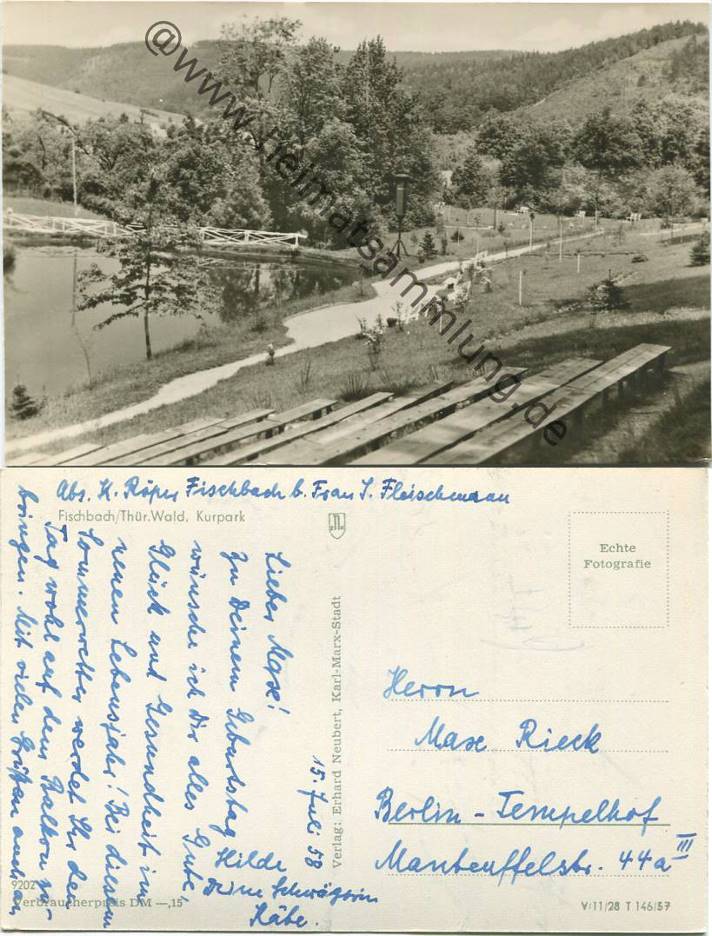 @www.heimatsammlung.de
Abs. K. Röper Fischbach b. Frau I. Fleischmann
Fischbach/Thür.Wald, Kurpark
Echte
Fotografie
Lieber Max!
Zu Deinem Geburtstag
wünsche ich Dir alles Gute,
Glück und Gesundheit im
neuen Lebensjahr! Bei diesem
Sommerwetter werdet Ihr den
Tag wohl auf dem Balkon ver-
bringen. Mit vielen Grüßen auch an
Hilde
Deine Schwägerin
Käte.
15. Juli 58
Verlag: Erhard Neubert, Karl-Marx-Stadt
Herrn
Max Rieck
Berlin-Tempelhof
Manteuffelstr. 44a III
9202
Verbraucherpreis DM —,15
V/11/28 T 146/57